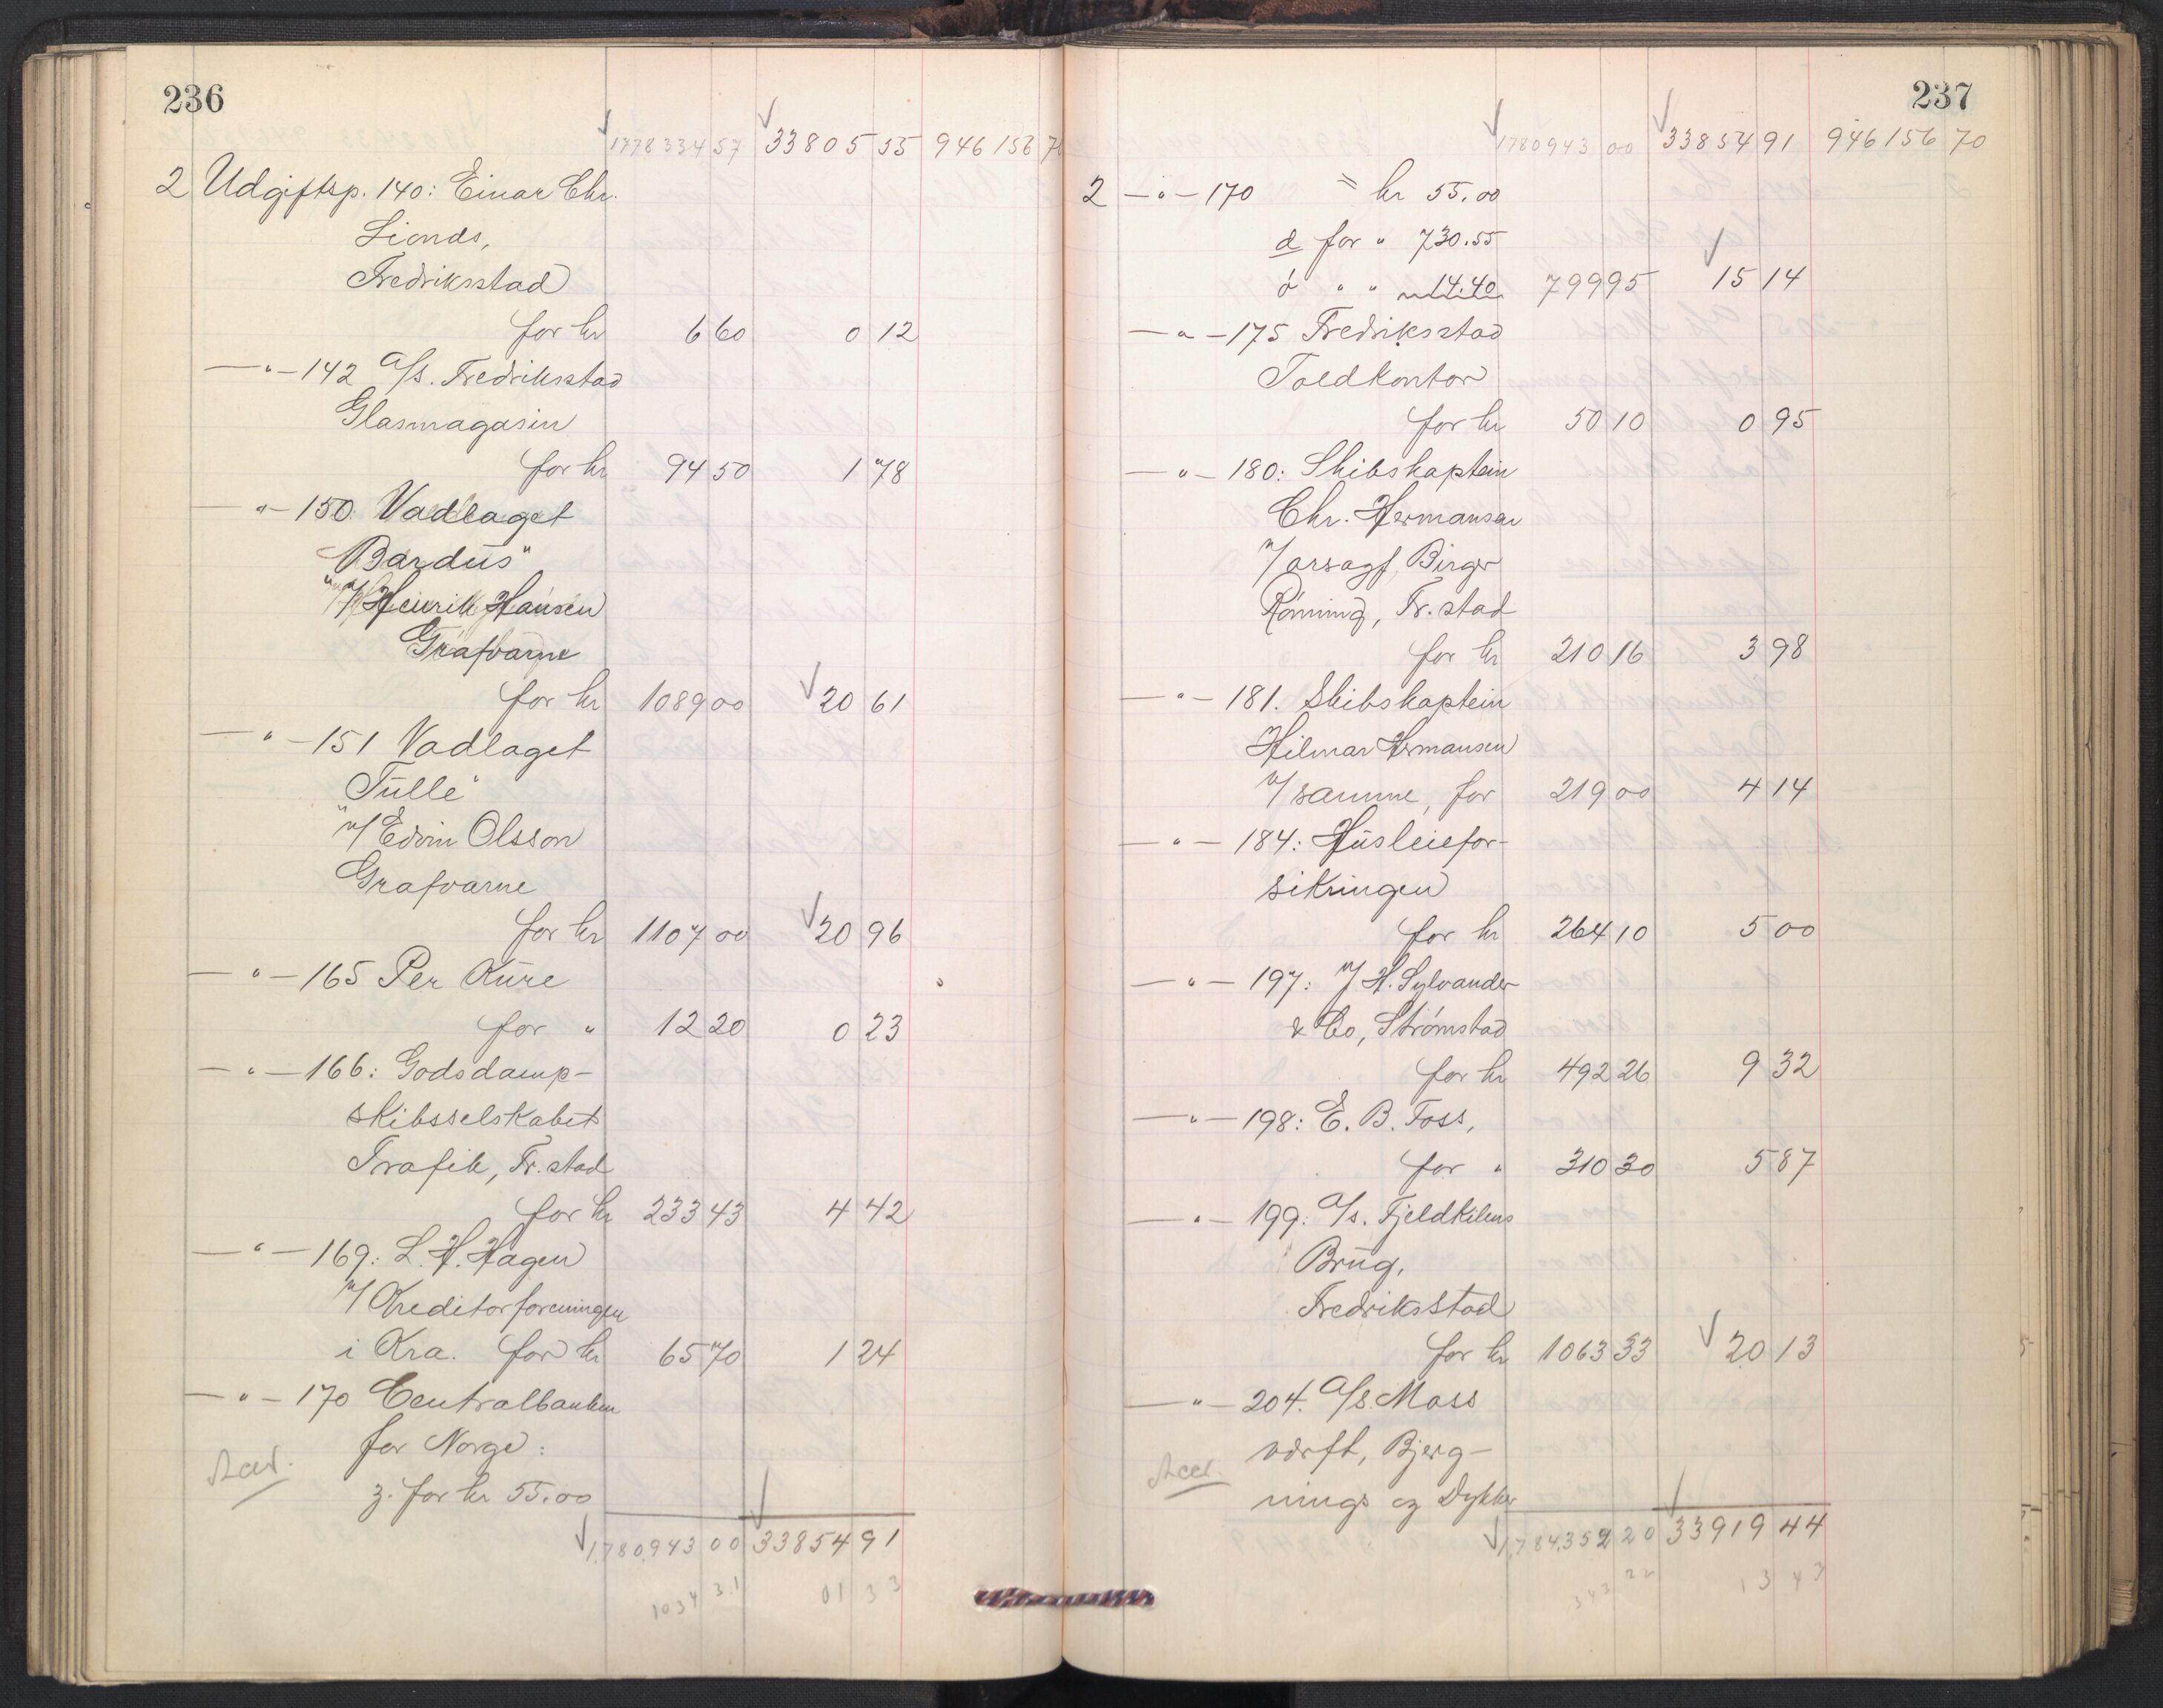 236
1778334 57 33805 55 946156 70
2 Udgiftsp. 140: Einar Chr.
Lionds,
Fredriksstad
for kr 6 60 0 12
—"—142 A/S. Fredriksstad
Glasmagasin
for kr 94 50 1 78
—"—150 Vadlaget
"Bardus"
v/ Henrik Hansen
Grafvarne
for kr 1089 00 20 61
—"—151 Vadlaget
"Tulle"
v/ Edvin Olsson
Grafvarne
for kr 1107 00 20 96
—"—165 Per Kure
for " 12 20 0 23
—"—166: Godsdamp-
skibsselskabet
Trafik, Fr.stad
for kr 233 43 4 42
—"—169: L. H. Hagen
v/ Kreditorforeningen
i Kra. for kr 65 70 1 24
—"—170 Centralbanken
for Norge:
z. for kr 55.00
1,780,943 00 33854 91
1034 31 01 33
237
1780943 00 33854 91 946156 70
2 —"—170 = kr 55.00
d for " 730.55
ó " " 14.40 799 95 15 14
—"—175 Fredriksstad
Toldkontor
for kr 50 10 0 95
—"—180: Skibskaptein
Chr. Hermansen
v/ orsagf. Birger
Rönning, Fr.stad
for kr 210 16 3 98
—"—181. Skibskaptein
Hilmar Hermansen
v/ samme, for 219 00 4 14
—"—184: Husleiefor-
sikringen
for kr 264 10 5 00
—"—197: v/ H. Sylvander
& Co, Strömstad
for kr 492 26 9 32
—"—198: E. B. Foss,
for " 310 30 5 87
—"—199: A/S. Fjeldkilens
Brug,
Fredriksstad
for kr 1063 33 20 13
—"—204. A/S. Moss
værft, Bjerg-
nings og Dykker
1,784,352 20 33919 44
343 22 13 43